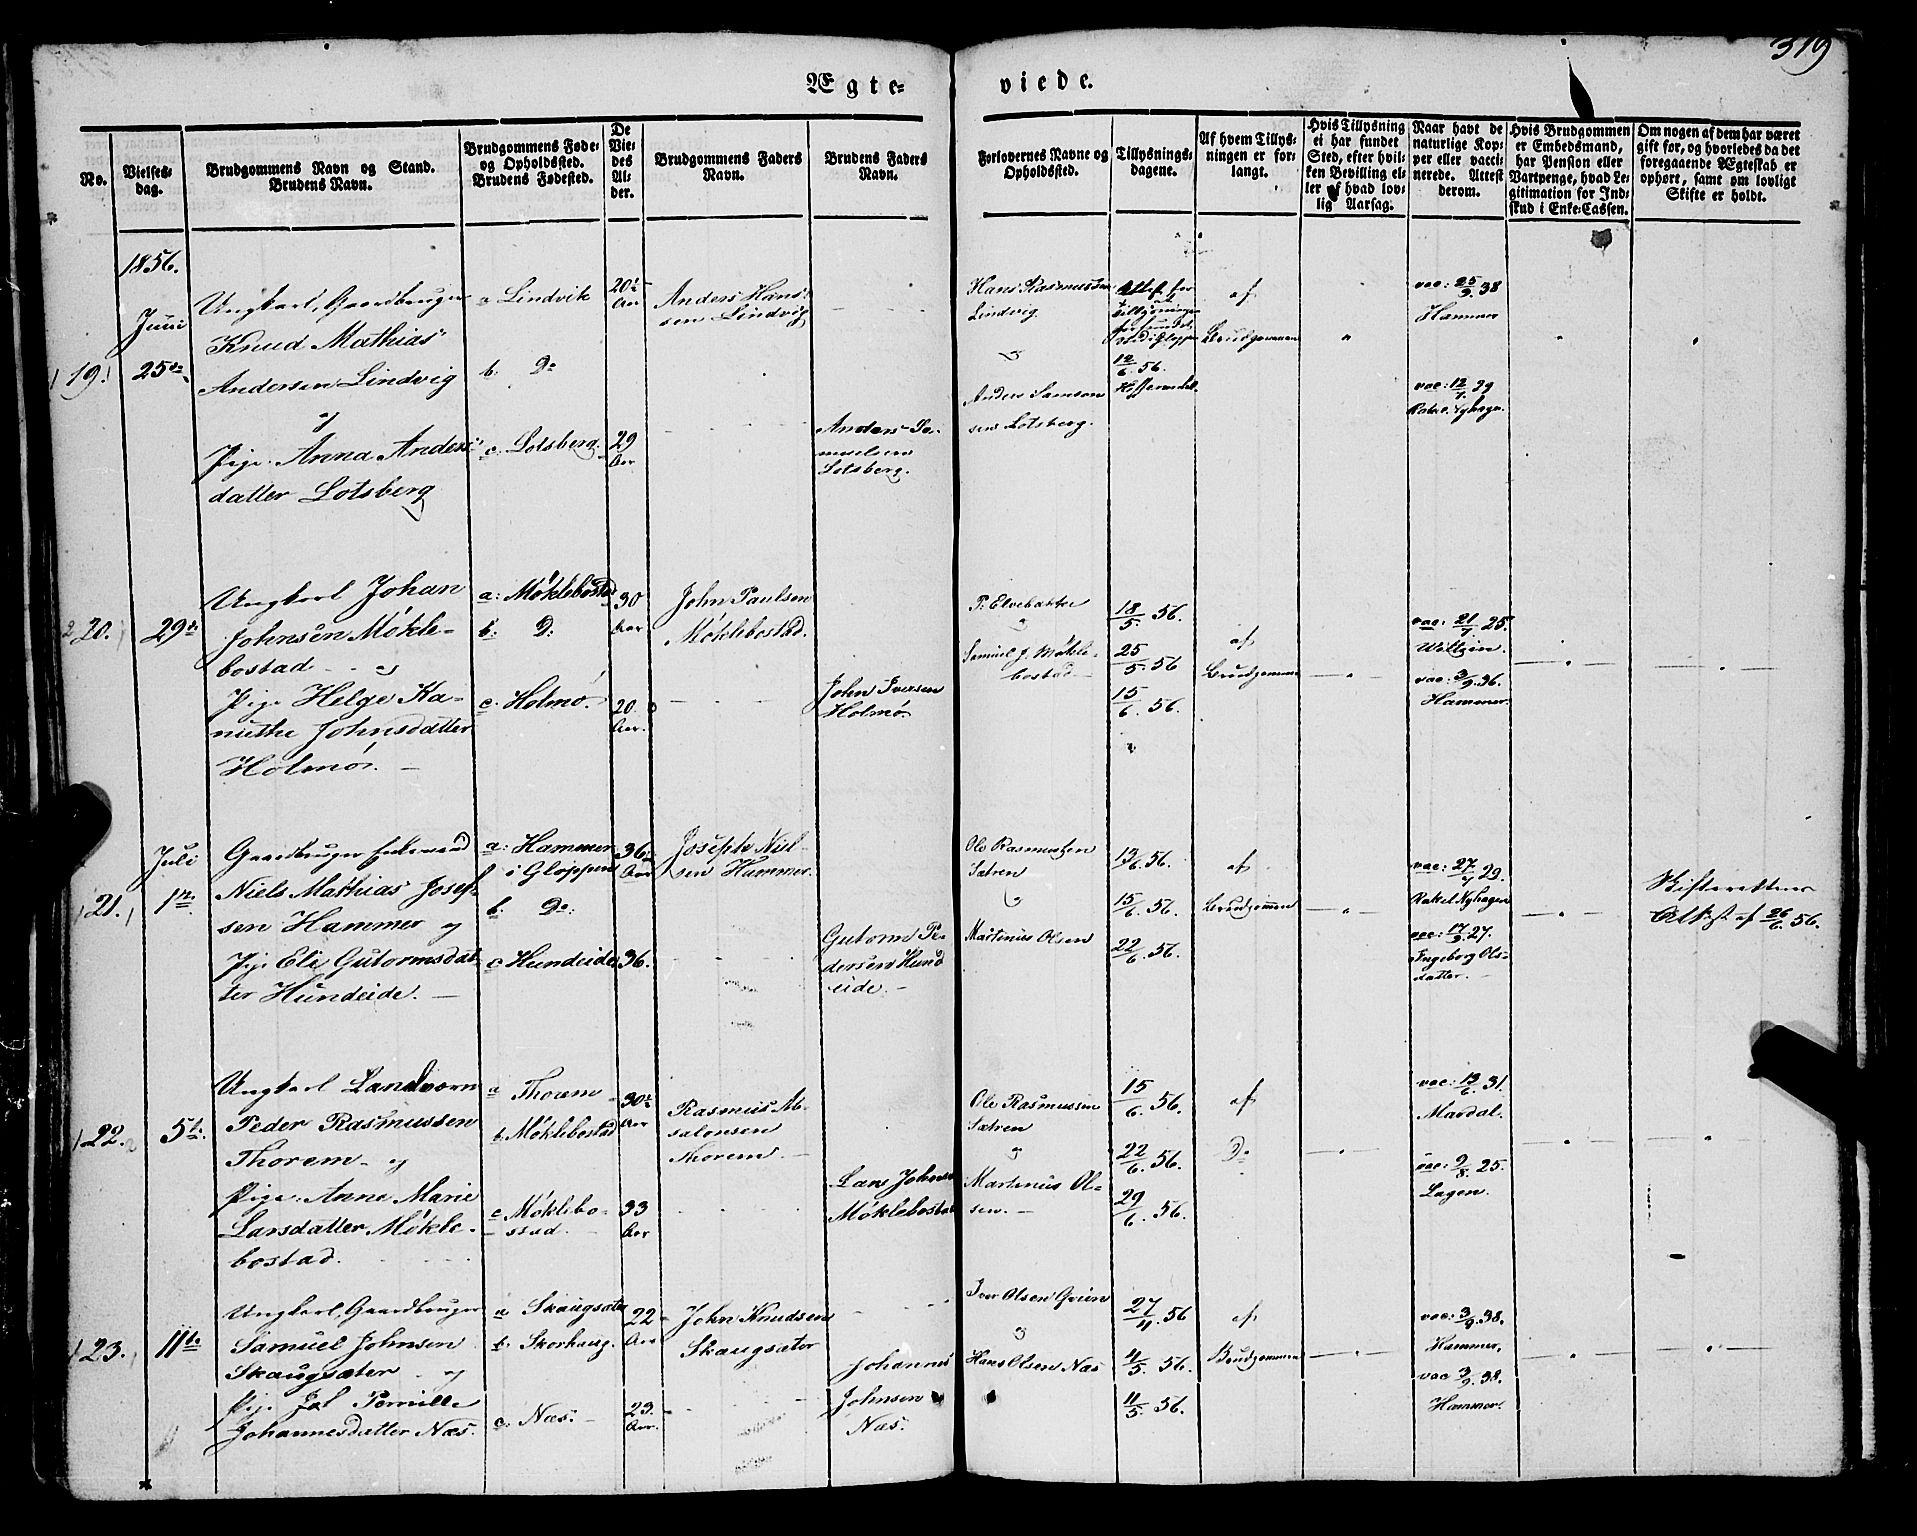 319
Ægte= viede.
No.
Vielses=
dag.
Brudgommens Navn og Stand.
Brudens Navn.
Brudgommens Føde=
og Opholdsted.
Brudens Fødested.
De
Vie=
des
Al=
der.
Brudgommens Faders
Navn.
Brudens Faders
Navn.
Forlovernes Navne og
Opholdsted.
Tillysnings=
dagene.
Af hvem Tillys=
ningen er for=
langt.
Hvis Tillysning
ei har fundet
Sted, efter hvil=
ken Bevilling el=
ler af hvad lov=
lig Aarsag.
Naar havt de
naturlige Kop=
per eller vacci=
nerede. Attest
derom.
Hvis Brudgommen
er Embedsmand,
har Pension eller
Vartpenge, hvad Le=
gitimation for Ind=
skud i Enke=Cassen.
Om nogen af dem har været
gift før, og hvorledes da det
foregaaende Ægteskab er
ophørt, samt om lovligt
Skifte er holdt.
1856.
Juni
19.
25de
Ungkarl, Gaardbruger
Knud Mathias
Andersen Lindvig
og
Pige Anna Anders=
datter Lotsberg
a Lindvik
b: Do
c: Lotsberg.
20
Aar
29
Aar
Anders Han=
sen Lindvig
Anders Sa=
muelsen
Lotsberg.
Hans Rasmussen
Lindvig
og
Anders Samson
sen Lotsberg.
12/6. 56.
af
Brudgommen
vac: 25/9. 38
Hammer
vac: 12/7. 29
Rakel Nyhagn.
20.
29de
Ungkarl Johan
Johnsen Mökle=
bostad og
Pige Helge Ka=
nuthe Johnsdatter
Holmö.
a: Möklebostad
b: Do
c. Holmö.
30
Aar
20
Aar.
John Paulsen
Möklebostad.
John Iversen
Holmö.
P. Elvebakke
og
Samuel J. Mökle=
bostad
18/5. 56.
25/5. 56
15/6. 56.
af
Brudgommen
vac: 21/7. 25.
Wiltzin.
vac: 3/9. 36.
Hammer.
Juli
21.
1ste
Gaardbruger Enkemand
Niels Mathias Josef=
sen Hammer og
Pige Eli Gutormsdat=
ter Hundeide.
a: Hammer
i Gloppen
b: Do:
c Hundeide
36
Aar
36.
Joseph Niel=
sen Hammer.
Gutorm Pe=
dersen Hund
eide.
Ole Rasmussen
Sætren
og
Martinus Olsen
15/6. 56.
22/6. 56.
af
Brudgommen
vac: 27/7. 29.
Rakel Nyhagen
vac: 17/9. 27.
Ingeborg Ols=
datter.
Skifterettens
Attest af 26/6. 56.
22.
5te
Ungkarl Landværn
Peder Rasmussen
Thorem og
Pige: Anne Marie
Larsdatter Mökle=
bostad.
a Thorem
b. Möklebostad
c Möklebo=
stad.
30
Aar
33
Aar
Rasmus
Thorem
Lars Johns
Möklebostad
Ole Rasmussen
Sætren
og
Martinus Ol=
sen.
15/6. 56.
22/6. 56.
29/6. 56.
af
Do
vac: 13/6. 31.
Mardal.
vac: 9/8. 25.
Lagen.
23.
11te
Ungkarl, Gaardbruger
Samuel Johnsen
Skaugsæter og
Pige Pernille
Johannesdatter Næs.
a Skaugsæter
b. Skorhaug.
c. Næs.
22
Aar
23.
Aar.
John Knudsen
Skaugsæter
Johannes
Johnsen
Næs.
Iver Olsen
og
Hans Olsen Næs
27/4. 56
4/5. 56.
af
Brudgommen
vac: 3/9. 38.
Hammer,
vac 3/9. 38.
Hammer.